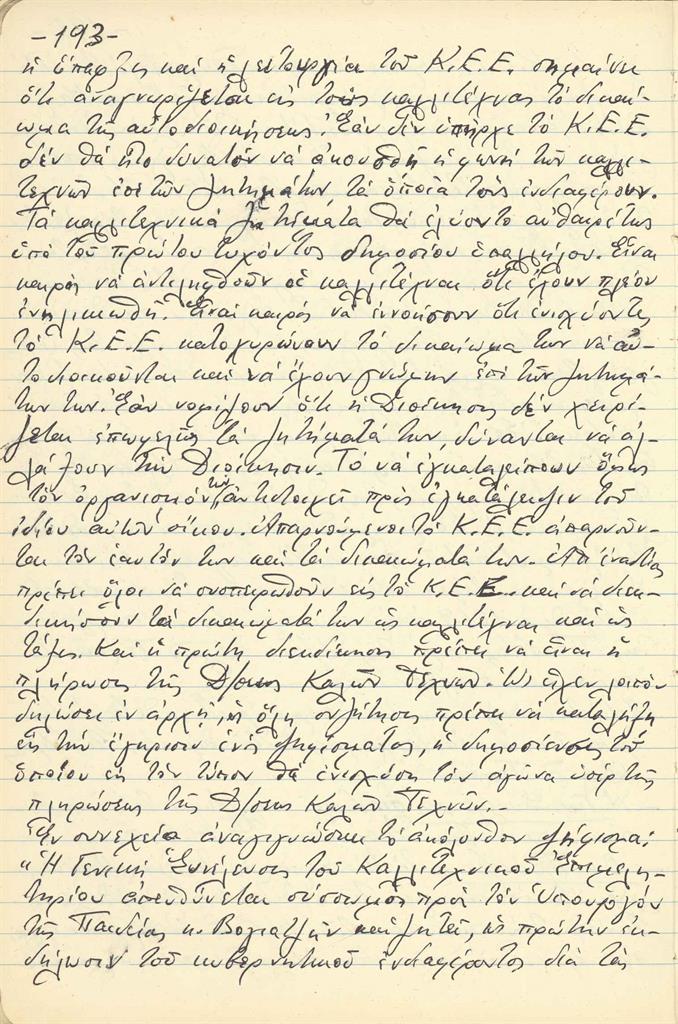 -193-
ἡ ὕπαρξις καὶ ἡ λειτουργία τοῦ Κ.Ε.Ε. σημαίνει
ὅτι ἀναγνωρίζεται εἰς τοὺς καλλιτέχνας τὸ δικαί-
ωμα τῆς αὐτοδιοικήσεως. Ἐὰν δὲν ὑπῆρχε τὸ Κ.Ε.Ε.
δὲν θὰ ἦτο δυνατὸν νὰ ἀκουσθῇ ἡ φωνὴ τῶν καλλι-
τεχνῶν ἐπὶ τῶν ζητημάτων, τὰ ὁποῖα τοὺς ἐνδιαφέρουν.
Τὰ καλλιτεχνικὰ ζητήματα θὰ ἐλύοντο αὐθαιρέτως
ὑπὸ τοῦ πρώτου τυχόντος δημοσίου ὑπαλλήλου. Εἶναι
καιρὸς νὰ ἀντιληφθοῦν οἱ καλλιτέχναι ὅτι ἔχουν πλέον
ἐνηλικιωθῆ. Εἶναι καιρὸς νὰ ἐννοήσουν ὅτι ἐνισχύοντες
τὸ Κ.Ε.Ε. κατοχυρώνουν τὸ δικαίωμά των νὰ αὐ-
τοδιοικοῦνται καὶ νὰ ἔχουν γνώμην ἐπὶ τῶν ζητημά-
των των. Ἐὰν νομίζουν ὅτι ἡ Διοίκησις δὲν χειρί-
ζεται ἐπωφελῶς τὰ ζητήματά των, δύνανται νὰ ἀλ-
λάξουν τὴν Διοίκησιν. Τὸ νὰ ἐγκαταλείπουν ὅμως
τὸν ὀργανισμόν των ἀντιστοιχεῖ πρὸς ἐγκατάλειψιν τοῦ
ἰδίου αὐτῶν οἴκου. Ἀπαρνούμενοι τὸ Κ.Ε.Ε. ἀπαρνοῦν-
ται τὸν ἑαυτόν των καὶ τὰ δικαιώματά των. Ἀπ' ἐναντίας
πρέπει ὅλοι νὰ συσπειρωθοῦν εἰς τὸ Κ.Ε.Ε. καὶ νὰ διεκ-
δικήσουν τὰ δικαιώματά των ὡς καλλιτέχναι καὶ ὡς
τάξις. Καὶ ἡ πρώτη διεκδίκησις πρέπει νὰ εἶναι ἡ
πλήρωσις τῆς Δ/σεως Καλῶν Τεχνῶν. Ὡς εἶχεν λοιπὸν
δηλώσει ἐν ἀρχῇ, ἡ ὅλη συζήτησις πρέπει νὰ καταλήξῃ
εἰς τὴν ἔγκρισιν ἑνὸς ψηφίσματος, ἡ δημοσίευσις τοῦ
ὁποίου εἰς τὸν τύπον θὰ ἐνισχύσῃ τὸν ἀγῶνα ὑπὲρ τῆς
πληρώσεως τῆς Δ/σεως Καλῶν Τεχνῶν.-
Ἐν συνεχείᾳ ἀναγιγνώσκει τὸ ἀκόλουθον ψήφισμα:
"Ἡ Γενικὴ Συνέλευσις τοῦ Καλλιτεχνικοῦ Ἐπιμελη-
τηρίου ἀπευθύνεται σύσσωμος πρὸς τὸν Ὑπουργὸν
τῆς Παιδείας κ. Βογιατζῆν καὶ ζητεῖ, ὡς πρώτην ἐκ-
δήλωσιν τοῦ κυβερνητικοῦ ἐνδιαφέροντος διὰ τὰς